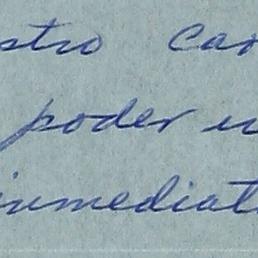 stro car
poder u
inmediat